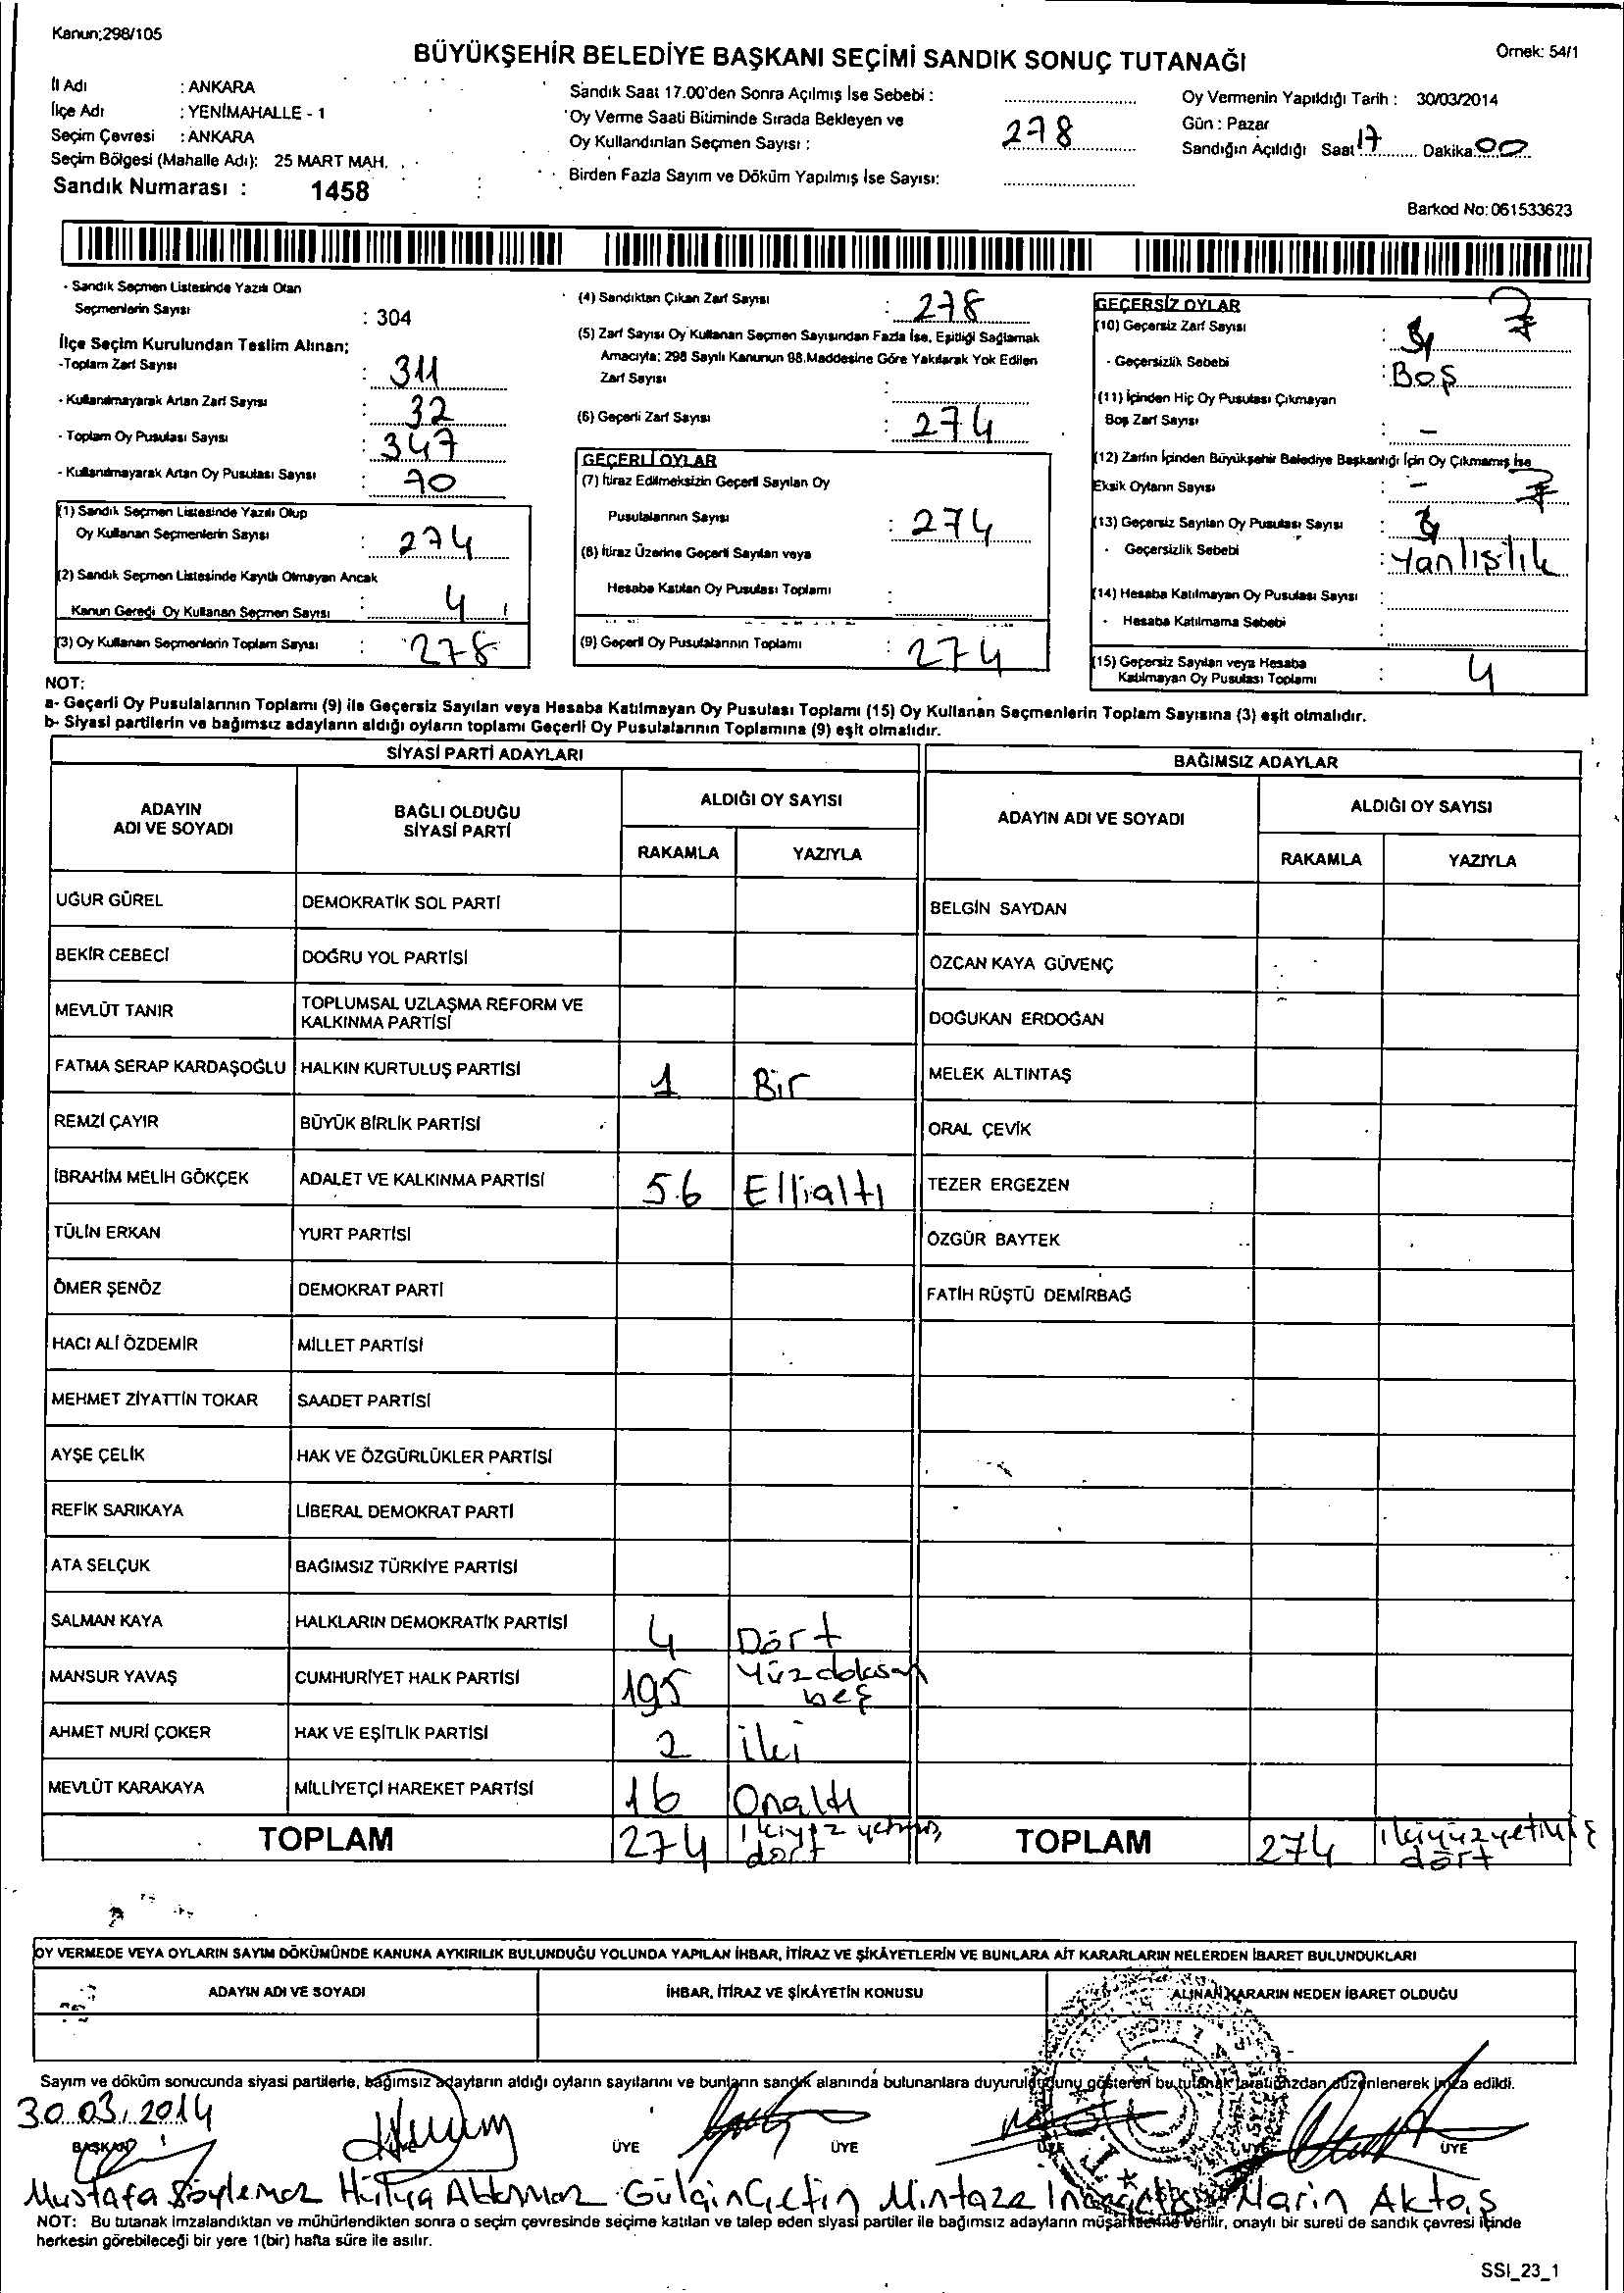 Kanun;298/105
BÜYÜKŞEHİR BELEDİYE BAŞKANI SEÇİMİ SANDIK SONUÇ TUTANAĞI
Örnek: 54/1
İl Adı : ANKARA
İlçe Adı : YENİMAHALLE - 1
Seçim Çevresi : ANKARA
Seçim Bölgesi (Mahalle Adı): 25 MART MAH.
Sandık Numarası : 1458
Sandık Saat 17.00'den Sonra Açılmış İse Sebebi :
Oy Verme Saati Bitiminde Sırada Bekleyen ve
Oy Kullandırılan Seçmen Sayısı : 278
Birden Fazla Sayım ve Döküm Yapılmış İse Sayısı:
Oy Vermenin Yapıldığı Tarih : 30/03/2014
Gün : Pazar
Sandığın Açıldığı Saat 17 Dakika 00
Barkod No: 061533623
- Sandık Seçmen Listesinde Yazılı Olan
Seçmenlerin Sayısı : 304
İlçe Seçim Kurulundan Teslim Alınan;
-Toplam Zarf Sayısı : 311
- Kullanılmayarak Artan Zarf Sayısı : 32
- Toplam Oy Pusulası Sayısı : 347
- Kullanılmayarak Artan Oy Pusulası Sayısı : 70
(1) Sandık Seçmen Listesinde Yazılı Olup
Oy Kullanan Seçmenlerin Sayısı : 274
(2) Sandık Seçmen Listesinde Kayıtlı Olmayan Ancak
Kanun Gereği Oy Kullanan Seçmen Sayısı : 4
(3) Oy Kullanan Seçmenlerin Toplam Sayısı : 278
(4) Sandıktan Çıkan Zarf Sayısı : 278
(5) Zarf Sayısı Oy Kullanan Seçmen Sayısından Fazla İse, Eşitliği Sağlamak
Amacıyla; 298 Sayılı Kanunun 98.Maddesine Göre Yakılarak Yok Edilen
Zarf Sayısı :
(6) Geçerli Zarf Sayısı : 274
GEÇERLİ OYLAR
(7) İtiraz Edilmeksizin Geçerli Sayılan Oy
Pusulalarının Sayısı : 274
(8) İtiraz Üzerine Geçerli Sayılan veya
Hesaba Katılan Oy Pusulası Toplamı :
(9) Geçerli Oy Pusulalarının Toplamı : 274
GEÇERSİZ OYLAR
(10) Geçersiz Zarf Sayısı :
- Geçersizlik Sebebi : Boş
(11) İçinden Hiç Oy Pusulası Çıkmayan
Boş Zarf Sayısı : -
(12) Zarfın İçinden Büyükşehir Belediye Başkanlığı İçin Oy Çıkmamış İse
Eksik Oyların Sayısı : -
(13) Geçersiz Sayılan Oy Pusulası Sayısı :
- Geçersizlik Sebebi : Yanlışlık
(14) Hesaba Katılmayan Oy Pusulası Sayısı :
- Hesaba Katılmama Sebebi :
(15) Geçersiz Sayılan veya Hesaba
Katılmayan Oy Pusulası Toplamı : 4
NOT:
a- Geçerli Oy Pusulalarının Toplamı (9) ile Geçersiz Sayılan veya Hesaba Katılmayan Oy Pusulası Toplamı (15) Oy Kullanan Seçmenlerin Toplam Sayısına (3) eşit olmalıdır.
b- Siyasi partilerin ve bağımsız adayların aldığı oyların toplamı Geçerli Oy Pusulalarının Toplamına (9) eşit olmalıdır.
SİYASİ PARTİ ADAYLARI
BAĞIMSIZ ADAYLAR
ADAYIN ADI VE SOYADI
BAĞLI OLDUĞU SİYASİ PARTİ
ALDIĞI OY SAYISI
RAKAMLA YAZIYLA
ADAYIN ADI VE SOYADI
ALDIĞI OY SAYISI
RAKAMLA YAZIYLA
UĞUR GÜREL DEMOKRATİK SOL PARTİ BELGİN SAYDAN
BEKİR CEBECİ DOĞRU YOL PARTİSİ ÖZCAN KAYA GÜVENÇ
MEVLÜT TANIR TOPLUMSAL UZLAŞMA REFORM VE KALKINMA PARTİSİ DOĞUKAN ERDOĞAN
FATMA SERAP KARDAŞOĞLU HALKIN KURTULUŞ PARTİSİ 1 Bir MELEK ALTINTAŞ
REMZİ ÇAYIR BÜYÜK BİRLİK PARTİSİ ORAL ÇEVİK
İBRAHİM MELİH GÖKÇEK ADALET VE KALKINMA PARTİSİ 56 Ellialtı TEZER ERGEZEN
TÜLİN ERKAN YURT PARTİSİ ÖZGÜR BAYTEK
ÖMER ŞENÖZ DEMOKRAT PARTİ FATİH RÜŞTÜ DEMİRBAĞ
HACI ALİ ÖZDEMİR MİLLET PARTİSİ
MEHMET ZİYATTİN TOKAR SAADET PARTİSİ
AYŞE ÇELİK HAK VE ÖZGÜRLÜKLER PARTİSİ
REFİK SARIKAYA LİBERAL DEMOKRAT PARTİ
ATA SELÇUK BAĞIMSIZ TÜRKİYE PARTİSİ
SALMAN KAYA HALKLARIN DEMOKRATİK PARTİSİ 4 Dört
MANSUR YAVAŞ CUMHURİYET HALK PARTİSİ 195 Yüzdoksan beş
AHMET NURİ ÇOKER HAK VE EŞİTLİK PARTİSİ 2 iki
MEVLÜT KARAKAYA MİLLİYETÇİ HAREKET PARTİSİ 16 Onaltı
TOPLAM 274 ikiyüzyetmiş dört TOPLAM 274 ikiyüzyetmiş dört
OY VERMEDE VEYA OYLARIN SAYIM DÖKÜMÜNDE KANUNA AYKIRILIK BULUNDUĞU YOLUNDA YAPILAN İHBAR, İTİRAZ VE ŞİKÂYETLERİN VE BUNLARA AİT KARARLARIN NELERDEN İBARET BULUNDUKLARI
ADAYIN ADI VE SOYADI İHBAR, İTİRAZ VE ŞİKÂYETİN KONUSU ALINAN KARARIN NEDEN İBARET OLDUĞU
Sayım ve döküm sonucunda siyasi partilerle, bağımsız adayların aldığı oyların sayılarını ve bunların sandık alanında bulunanlara duyurulduğunu gösteren bu tutanak tarafımızdan düzenlenerek imza edildi.
30.03.2014
BAŞKAN ÜYE ÜYE ÜYE ÜYE ÜYE
Mustafa Söylemez Hülya Gülçin Çetin Narin Aktaş
NOT: Bu tutanak imzalandıktan ve mühürlendikten sonra o seçim çevresinde seçime katılan ve talep eden siyasi partiler ile bağımsız adayların müşahitlerine verilir, onaylı bir sureti de sandık çevresi içinde
herkesin görebileceği bir yere 1(bir) hafta süre ile asılır.
SSI_23_1